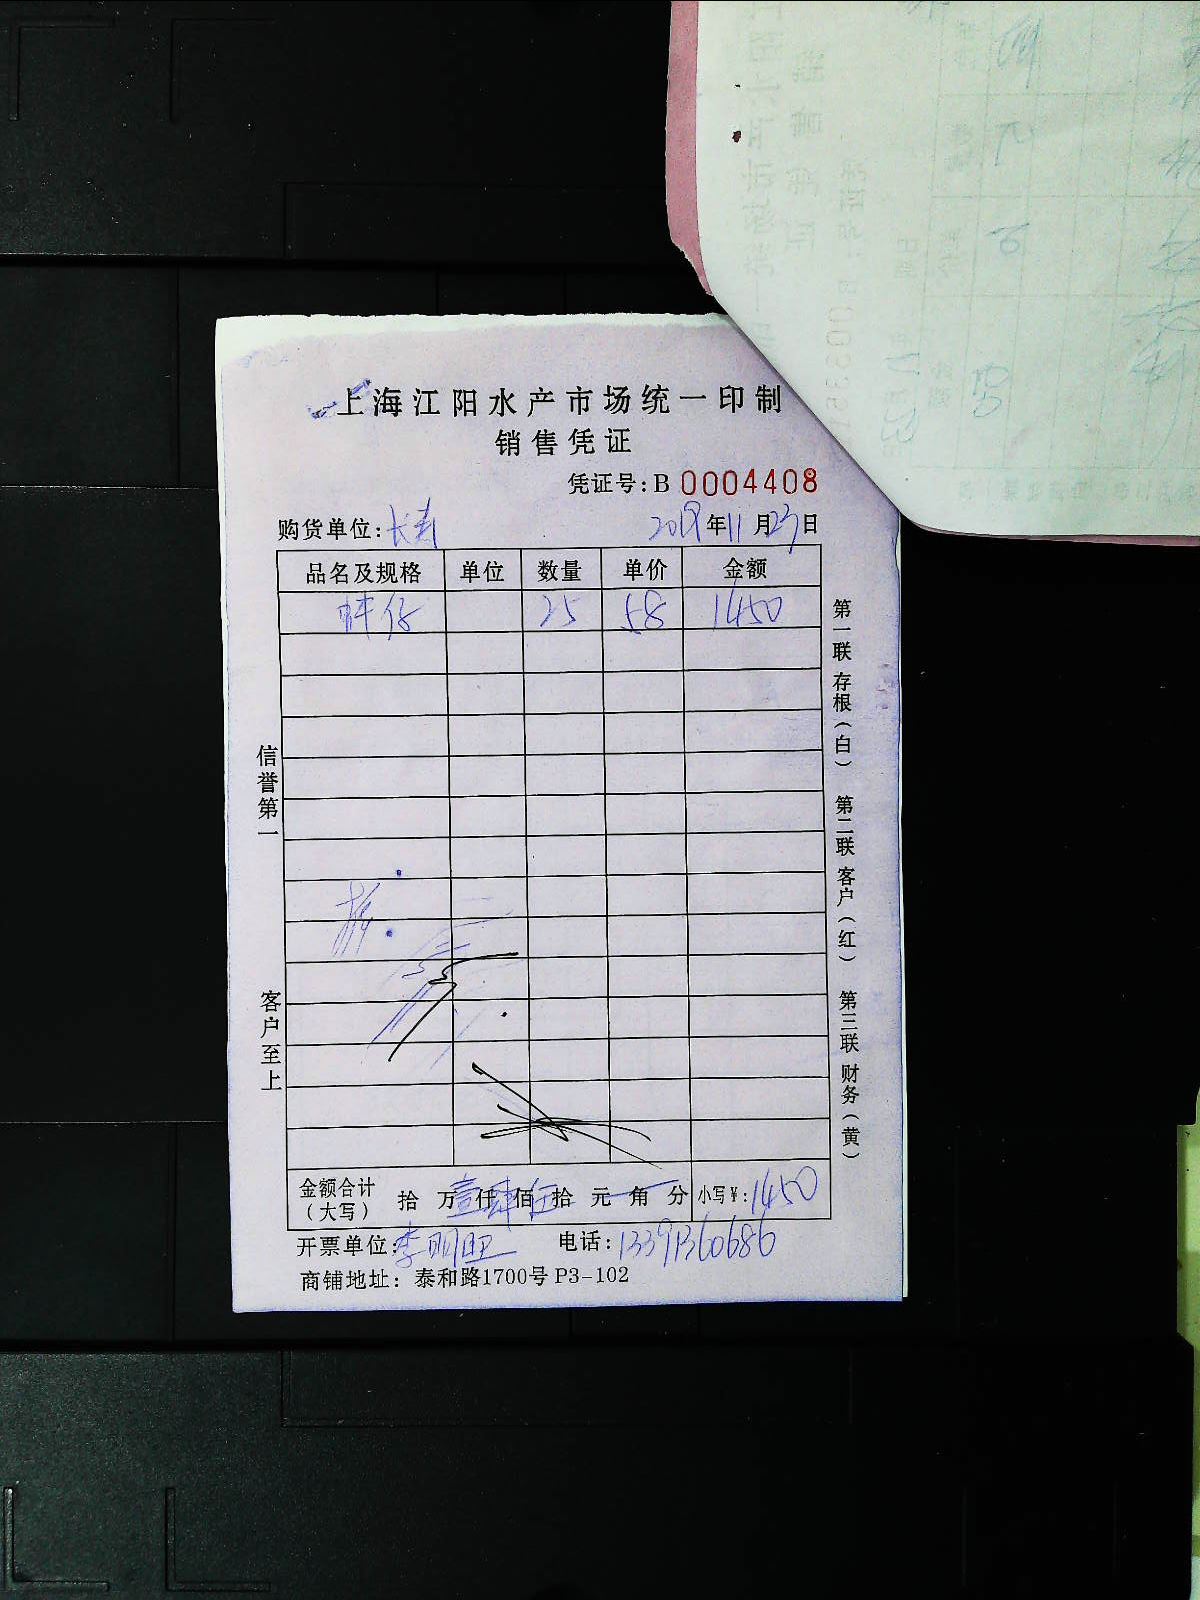 上海江阳水产市场统一印制
销售凭证
凭证号:B 0004408
购货单位:长寿 2019年11月23日
品名及规格 单位 数量 单价 金额
蚌仔 25 58 1450
信誉第一
客户至上
第一联 存根(白) 第二联 客户(红) 第三联 财务(黄)
金额合计(大写) 拾 万壹仟肆佰伍拾 元 角 分 小写¥:1450
开票单位:李明旺 电话:13391360686
商铺地址:泰和路1700号 P3-102